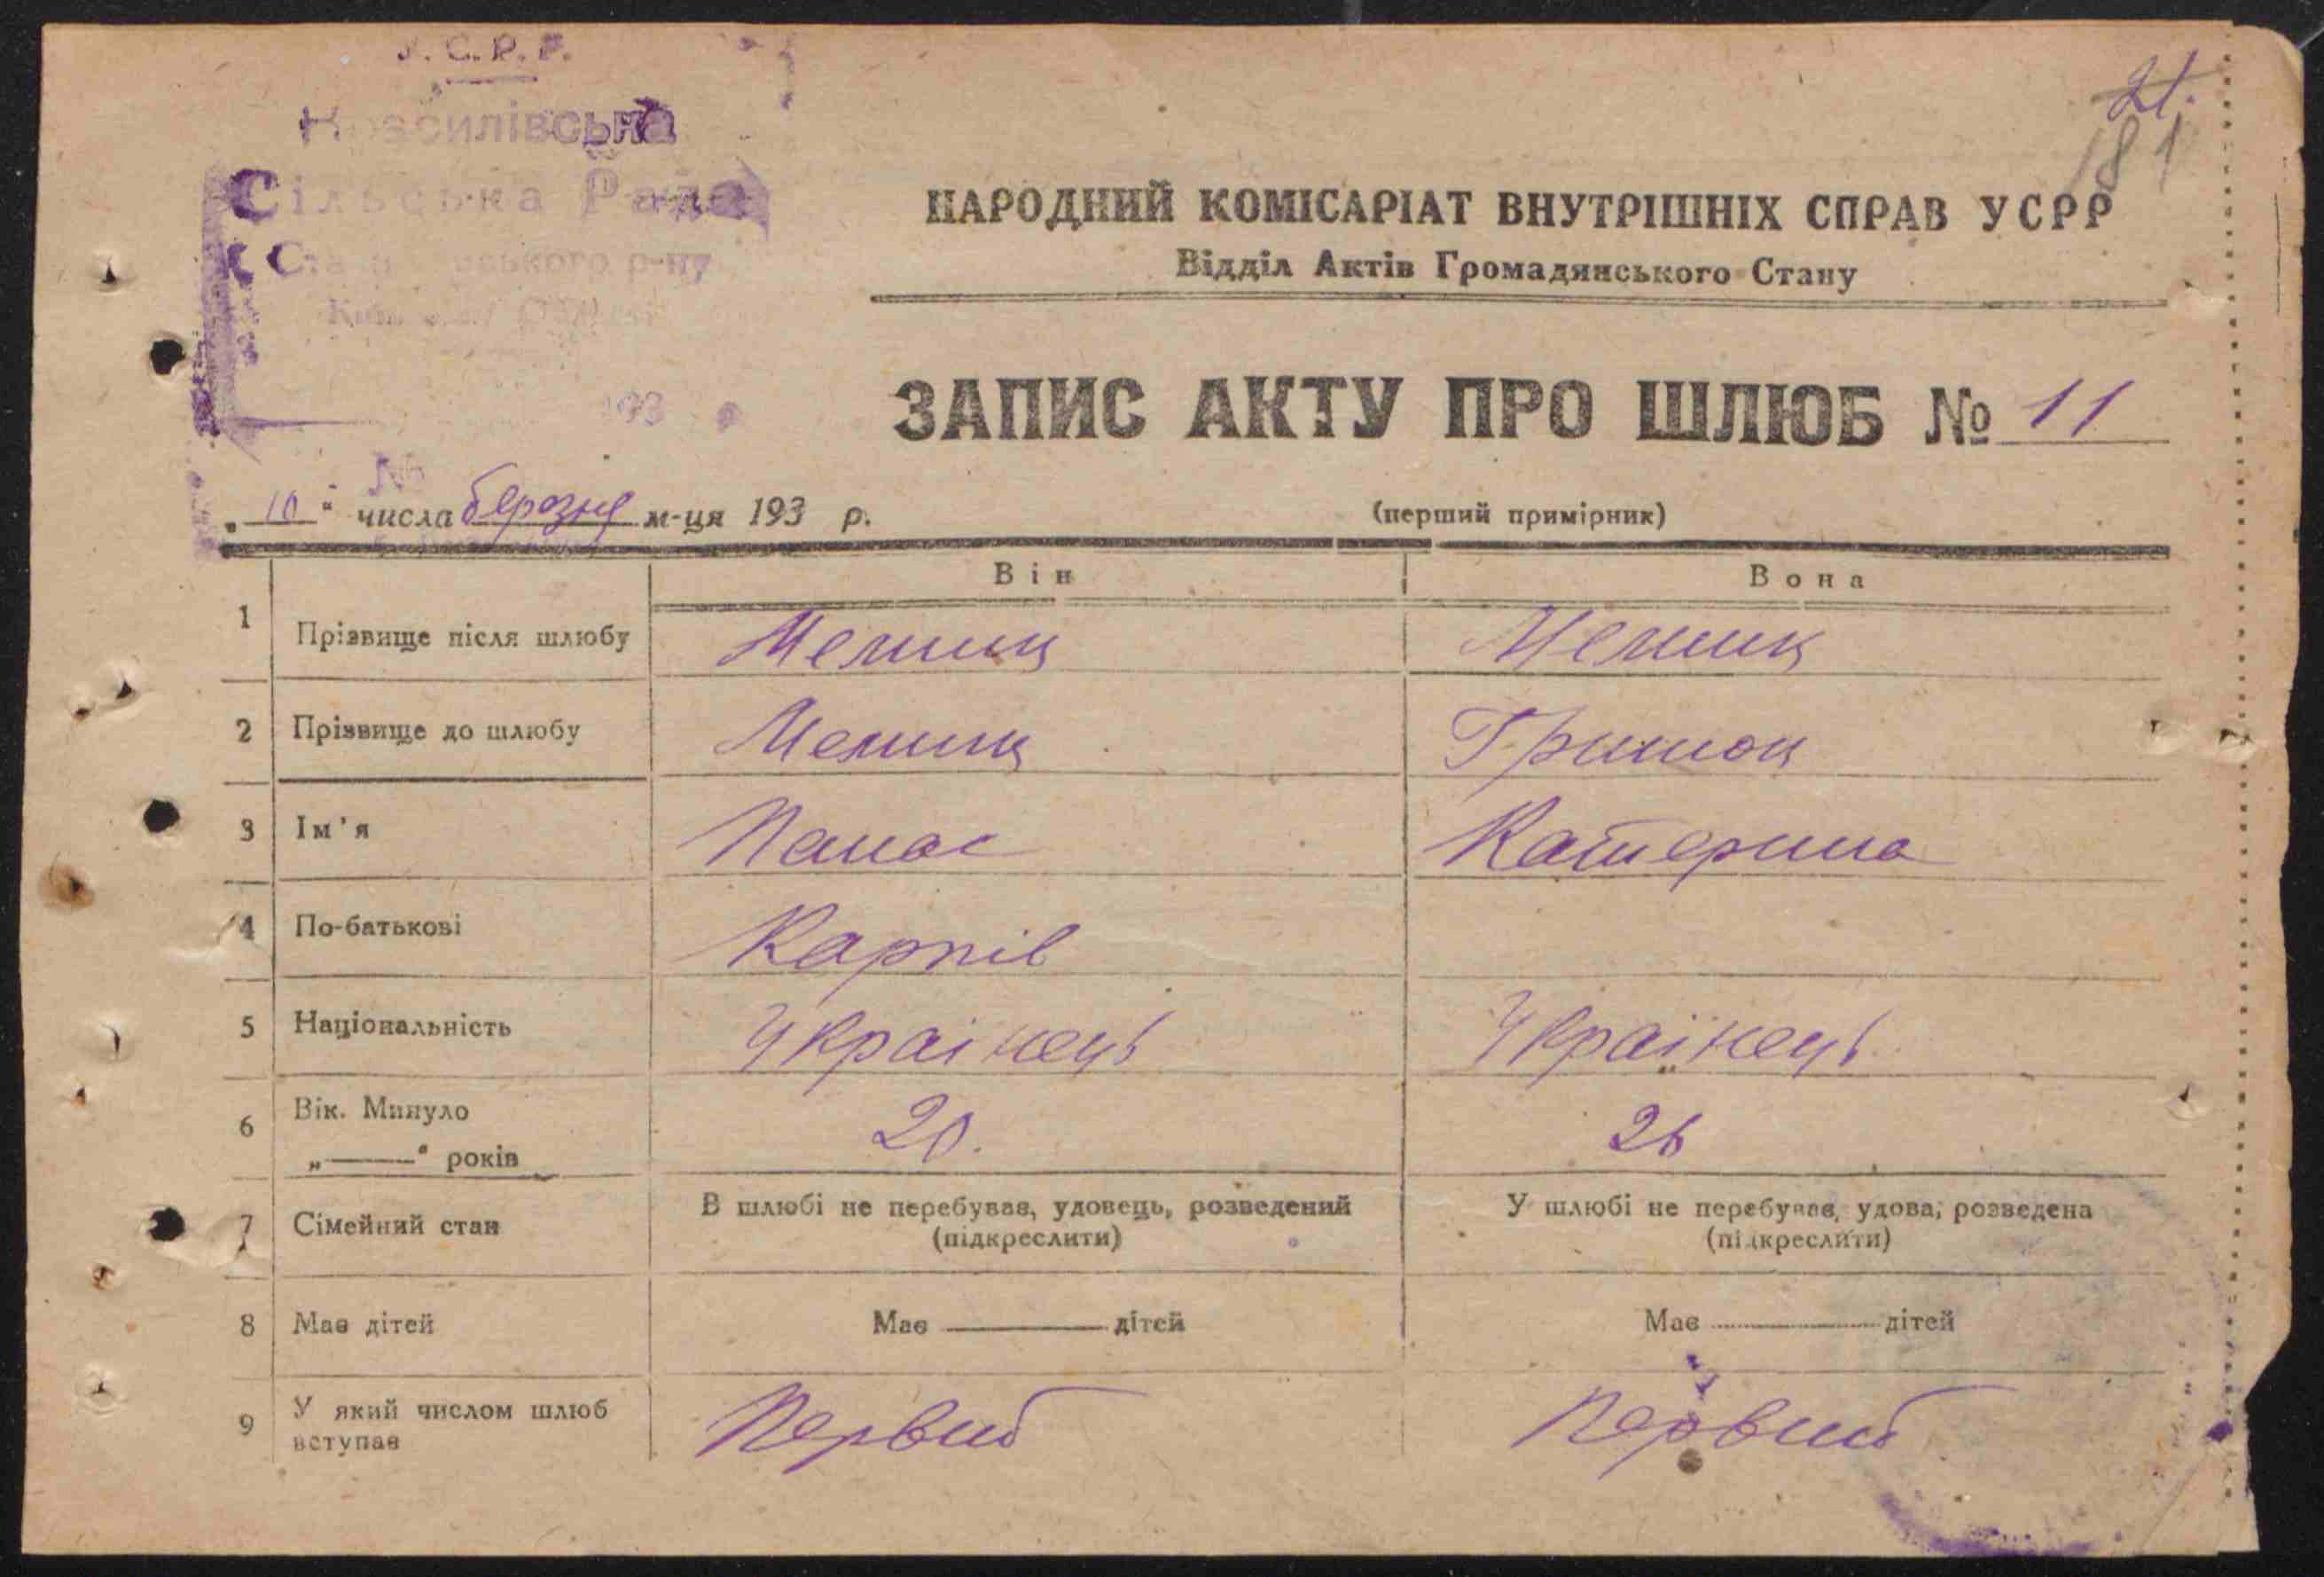 У.С.Р.Р.
Красилівська
Сільська Рада
р-ну
21.
181
НАРОДНИЙ КОМІСАРІАТ ВНУТРІШНІХ СПРАВ УСРР
Відділ Актів Громадянського Стану
ЗАПИС АКТУ ПРО ШЛЮБ № 11
193
№
„10“ числа березня м-ця 193 р.
(перший примірник)
Він Вона
1 Прізвище після шлюбу Мельник Мельник
2 Прізвище до шлюбу Мельник Гришок
3 Ім'я Панас Катерина
4 По-батькові Карпів
5 Національність Українець Українець
6 Вік. Минуло
„——“ років 20. 26
7 Сімейний стан В шлюбі не перебував, удовець, розведений У шлюбі не перебував, удова, розведена
(підкреслити) (підкреслити)
8 Має дітей Має ——— дітей Має ........ дітей
9 У який числом шлюб
вступає Первий Первий